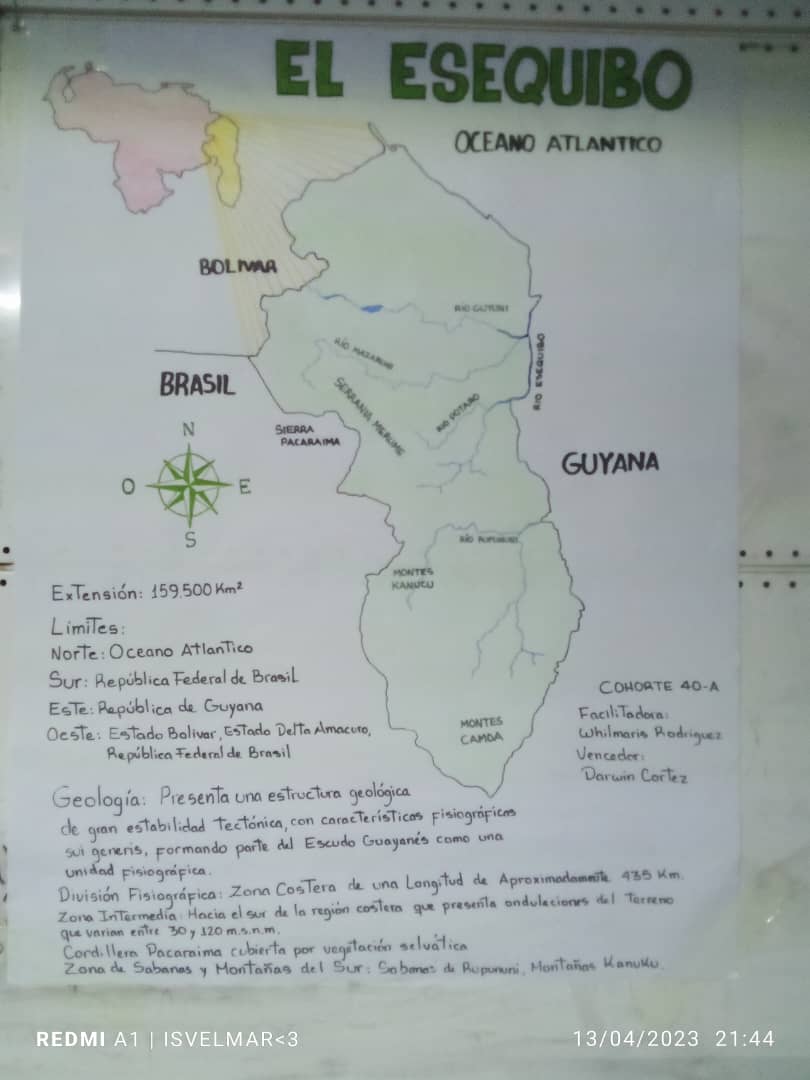 EL ESEQUIBO
OCEANO ATLANTICO
BOLIVAR
RÍO CUYUNI
RÍO MAZARUNI
RÍO ESEQUIBO
BRASIL
SERRANIA MERUME
RIO POTARO
SIERRA
PACARAIMA
GUYANA
N
O
E
S
RÍO RUPUNUNI
MONTES
KANUCU
MONTES
CAMOA
ExTensión: 159.500 Km²
Límites:
Norte: Oceano Atlantico
Sur: República Federal de Brasil
Este: República de Guyana
Oeste: Estado Bolivar, Estado Delta Amacuro,
República Federal de Brasil
COHORTE 40-A
Facilitadora:
Whilmaris Rodriguez
Vencedor:
Darwin Cortez
Geología: Presenta una estructura geológica
de gran estabilidad tectónica, con características fisiográficas
sui generis, formando parte del Escudo Guayanés como una
unidad fisiográfica.
División Fisiográfica: Zona Costera de una Longitud de Aproximadamente 435 Km.
Zona Intermedia: Hacia el sur de la región costera que presenta ondulaciones del Terreno
que varian entre 30 y 120 m.s.n.m.
Cordillera Pacaraima cubierta por vegetación selvática
Zona de Sabanas y Montañas del Sur: Sabanas de Rupununi, Montañas Kanuku.
REDMI A1 | ISVELMAR<3
13/04/2023 21:44